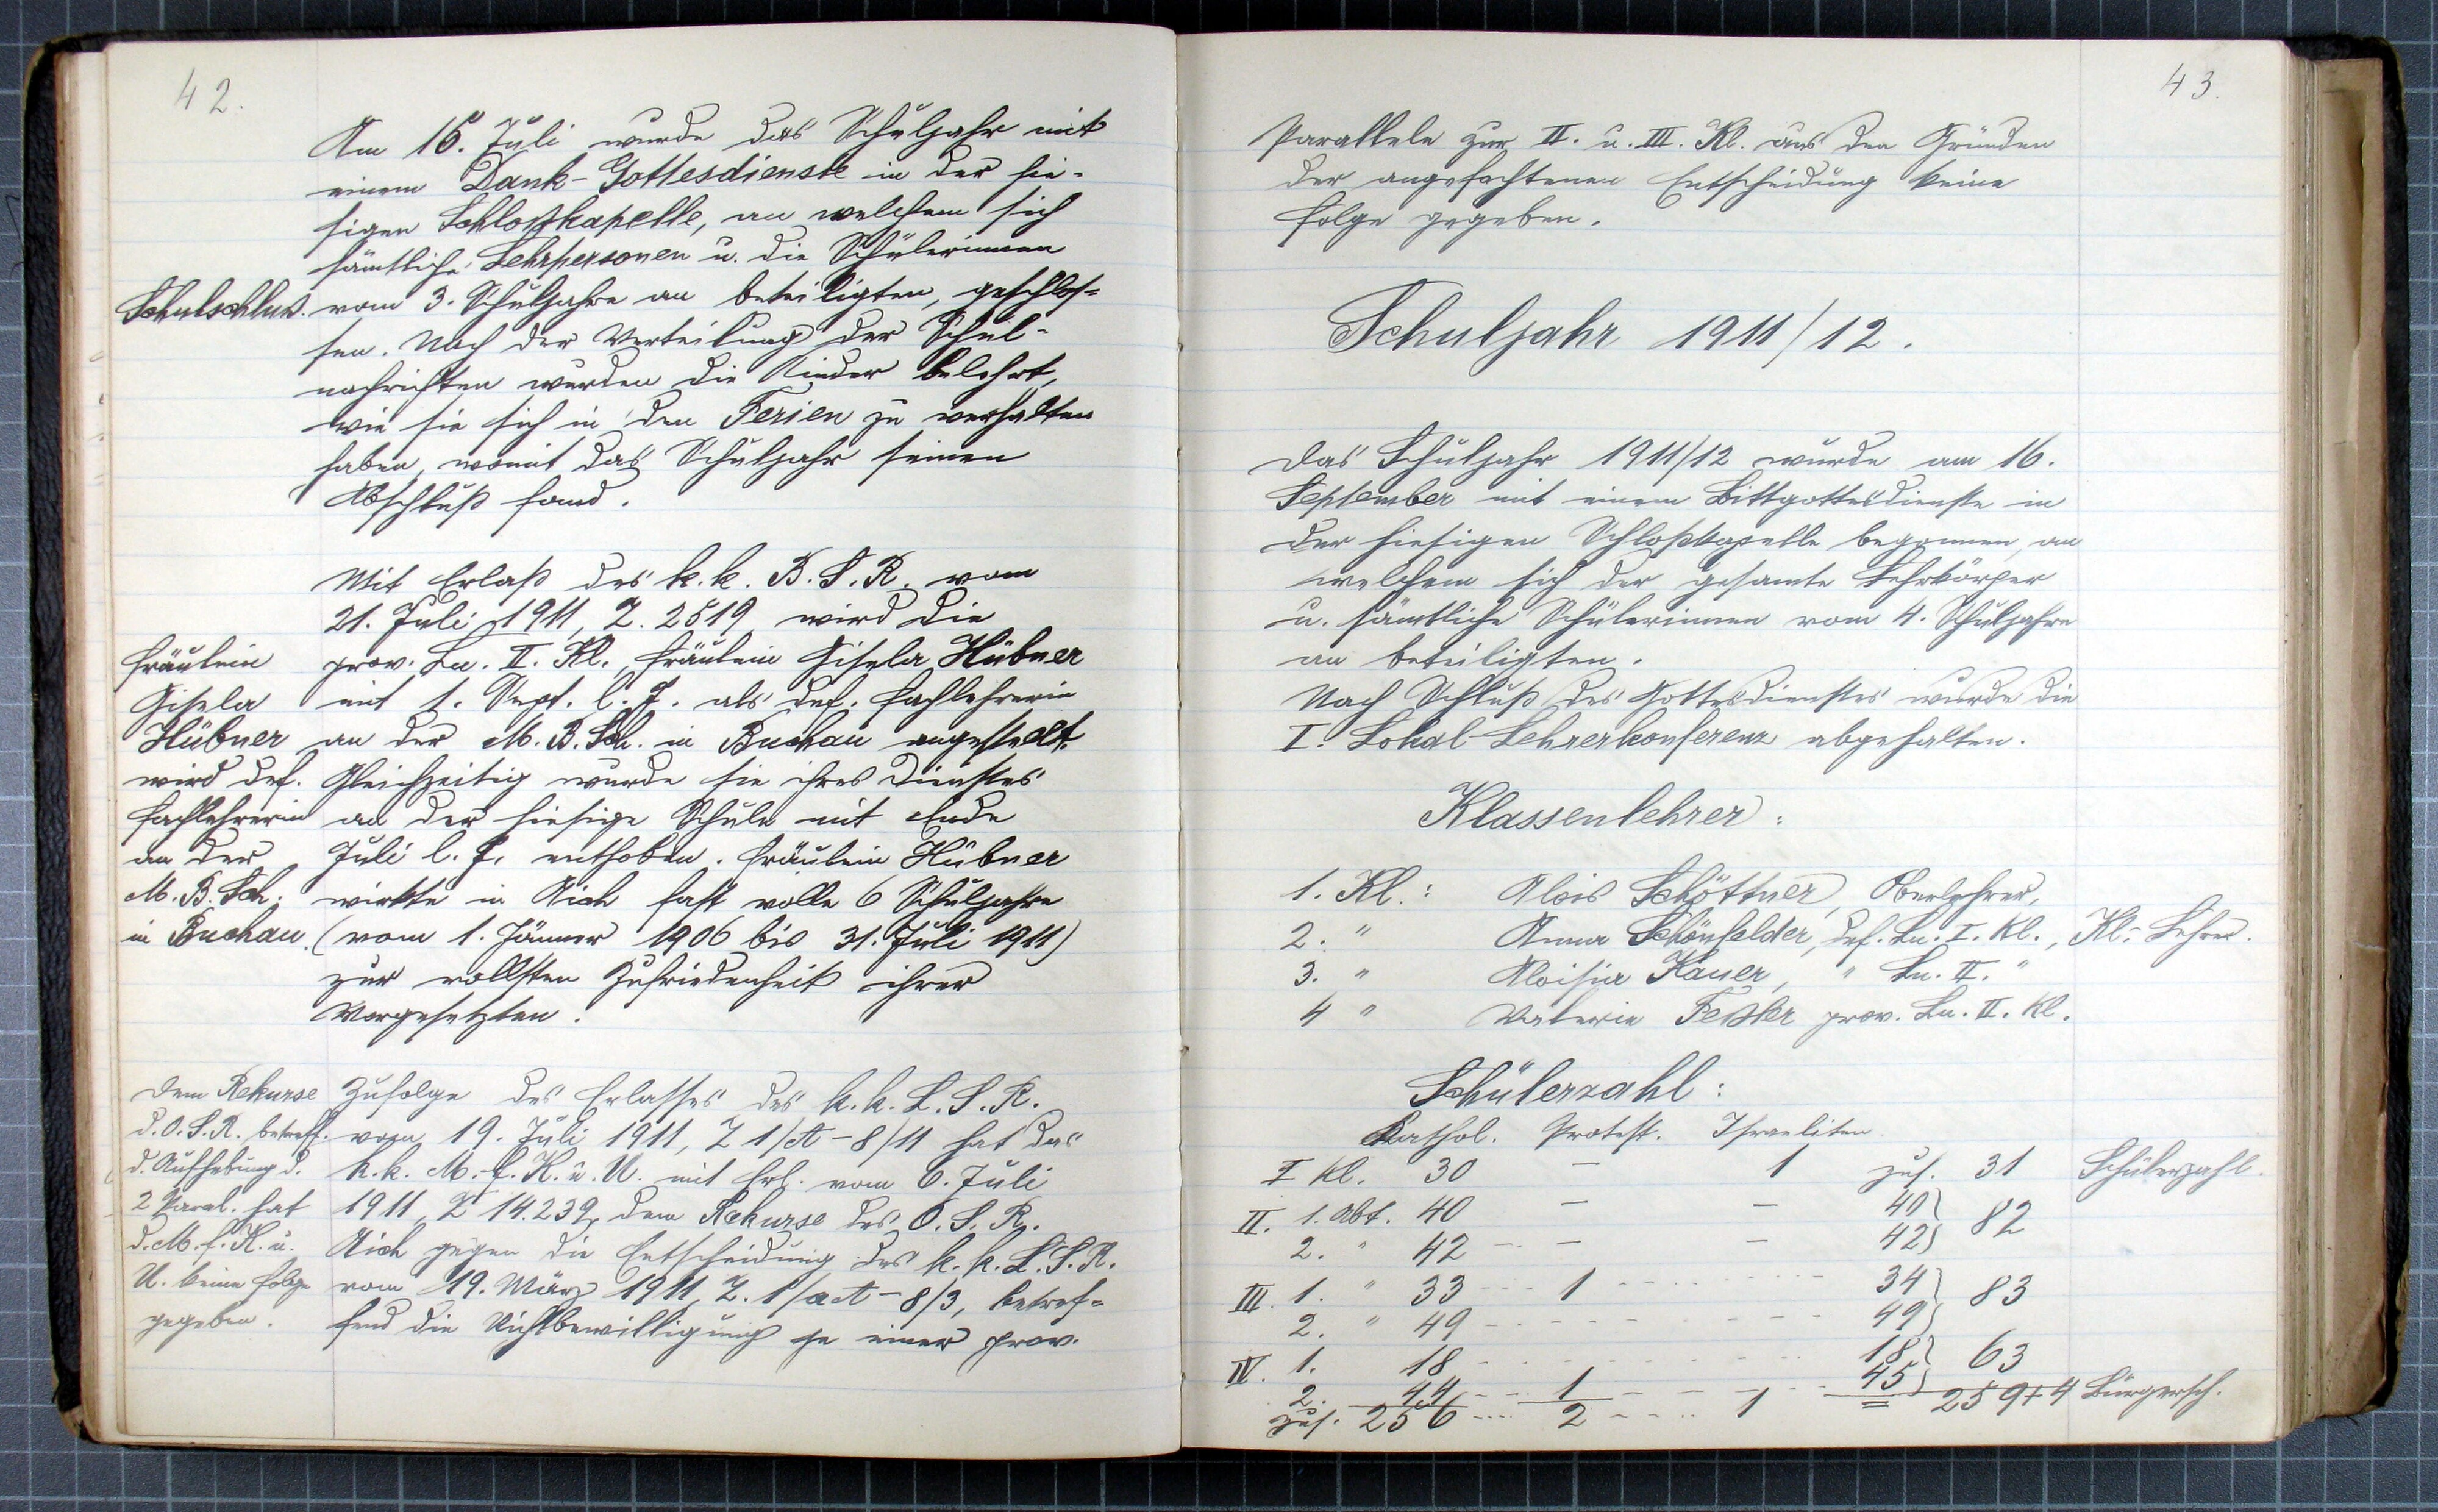 42.
Am 15. Juli wurde das Schuljahr mit
einem Dank-Gottesdienste in der hie-
sigen Schloßkapelle, an welchem sich
sämtliche Lehrpersonen u. die Schülerinnen
Schulschluß.
vom 3. Schuljahre an beteiligten, geschlos-
sen. Nach der Verteilung der Schul-
nachrichten wurden die Kinder belehrt,
wie sie sich in den Ferien zu verhalten
haben, womit das Schuljahr seinen
Abschluß fand.
Mit Erlaß des k.k. B.S.R. vom
21. Juli 1911, Z. 2519 wird die
Fräulein
Gisela
Hübner
wird def.
Fachlehrerin
an der
M. B. Sch.
in Buchau.
prov. Ln. II. Kl., Fräulein Gisela Hübner
mit 1. Sept. l. J. als def. Fachlehrerin
an der M. B. Sch. in Buchau angestellt.
Gleichzeitig wurde sie ihres Dienstes
an der hiesige Schule mit Ende
Juli l. J. enthoben. Fräulein Hübner
wirkte in Aich fast volle 6 Schuljahre
(vom 1. Jänner 1906 bis 31. Juli 1911)
zur vollsten Zufriedenheit ihrer
Vorgesetzten.
Dem Rekurse
d. O.S.R. betreff.
d. Aufhebung d.
2 Paral. hat
d. M. f. K. u.
U. keine Folge
gegeben.
Zufolge des Erlasses des k.k. L.S.R.
vom 19. Juli 1911, Z 1/A-8/11 hat das
k.k. M. f. K. u. U. mit Erl. vom 6. Juli
1911, Z 14.239, dem Rekurse des O.S.R.
Aich gegen die Entscheidung des k.k. L.S.R.
vom 19. März 1911, Z. 1/aA-8/3, betref-
fend die Nichtbewilligung je einer prov.
43.
Parallele zur II. u. III. Kl. aus den Gründen
der angefochtenen Entscheidung keine
Folge gegeben.
Schuljahr 1911/12.
Das Schuljahr 1911/12 wurde am 16.
September mit einem Bittgottesdienste in
der hiesigen Schloßkapelle begonnen, an
welchem sich der gesamte Lehrkörper
u. sämtliche Schülerinnen vom 4. Schuljahre
an beteiligten.
Nach Schluß des Gottesdienstes wurde die
I. Lokal-Lehrerkonferenz abgehalten.
Klassenlehrer:
1. Kl.: Alois Schöttner, Oberlehrer,
2. " Anna Schönfelder, def. Ln. I. Kl., Kl.-Lehrer.
3. " Aloisia Kauer, " Ln. II. "
4 " Valerie Feßler prov. Ln. II. Kl.
Schülerzahl:
Kathol. Protest. Israeliten
I Kl. 30 — 1 zus. 31 Schülerzahl.
II. 1. Abt. 40 — — 40} 82
2. " 42 — — 42}
III. 1. " 33 1 34} 83
2. " 49 49}
IV. 1. 18 18} 63
2. 44 1 45}
zus. 256 2 1 259+4 Bürgersch.